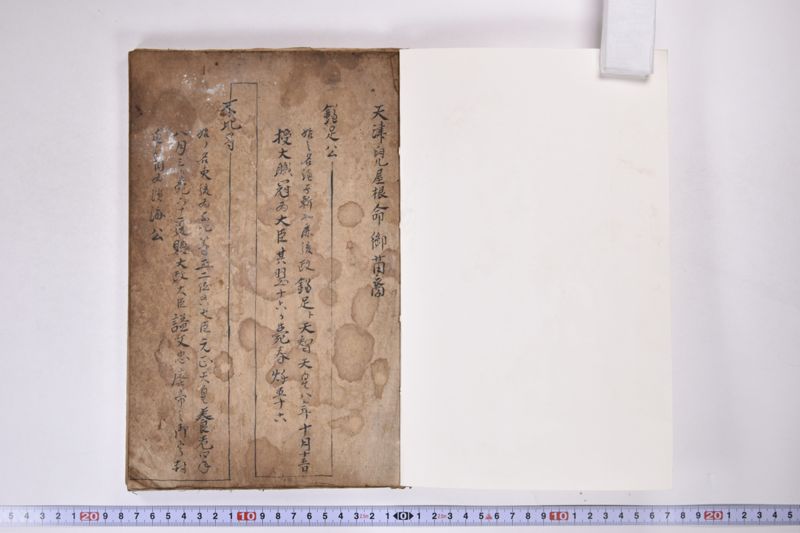 天津児屋根命御苗裔
鎌足公
始ノ名鎌子 後改鎌足ト天智天皇八年十月十五日
授大職冠為大臣其翌十六日薨春秋五十六
不比等
始ノ名史後為不比等正二位右大臣元正天皇養老四年
八月三日薨六十二 贈大政大臣謚文忠 廃帝ノ御宇封
淡海公